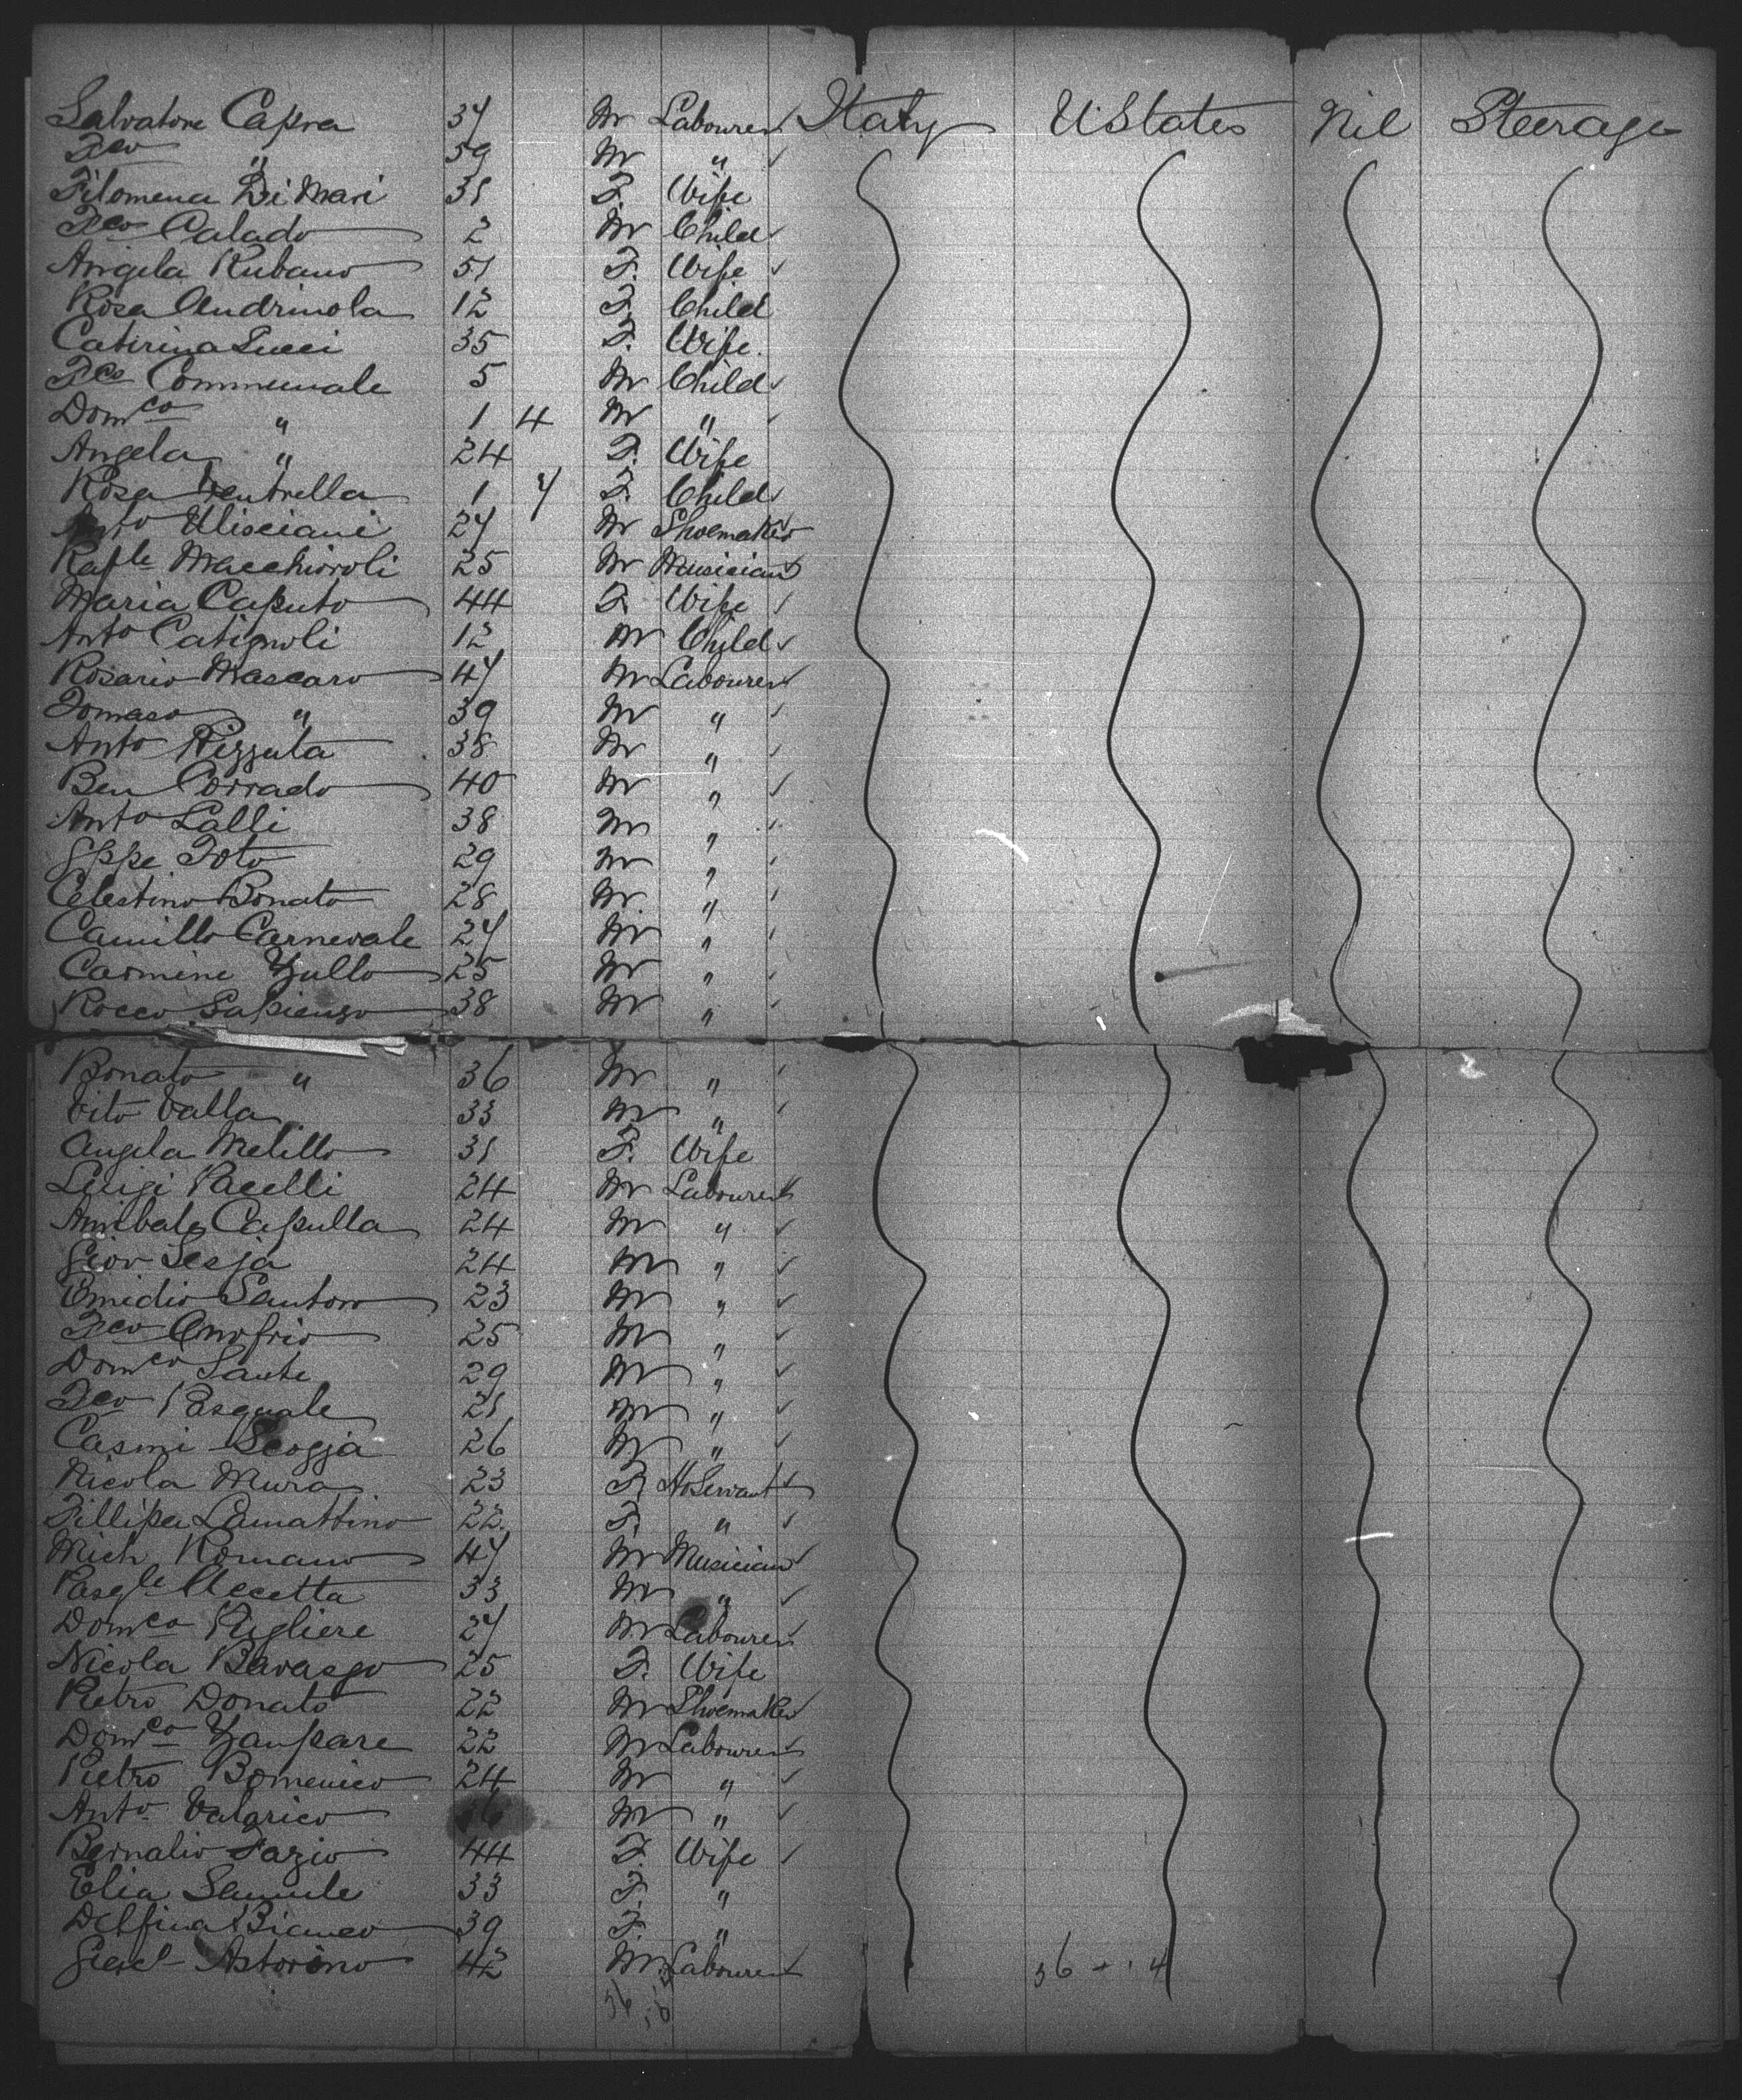 Salvatore Capra 37 M Labourer Italy UStates Nil Steerage
Fco " 59 M "
Filomena Di Mari 31 F. Wife
Fco Calado 2 M Child
Angela Rubano 51 F. Wife
Rosa Andrinola 12 F. Child
Caterina Pucci 35 F. Wife.
Fco Communale 5 M Child
Domco " 1 4 M "
Angela " 24 F. Wife
Rosa Ventrella 1 7 F. Child
Anto Ulisciani 27 M Shoemaker
Rafle Macchiaroli 25 M Musician
Maria Caputo 44 F. Wife
Anto Catignoli 12 M Child
Rosario Mascaro 47 M Labourer
Tomaso " 39 M "
Anto Pizzuta 38 M "
Ben Corrado 40 M "
Anto Lalli 38 M "
Gppe Toto 29 M "
Celestino Bonato 28 M "
Camillo Carnevale 27 M "
Carmine Zullo 25 M "
Rocco Sapienzo 38 M "
Bonato " 36 M "
Vito Valla 33 M "
Angela Melillo 31 F. Wife
Luigi Pacelli 24 M Labourer
Annibale Capulla 24 M "
Giov Sesja 24 M "
Emidio Santoro 23 M "
Fco Onofrio 25 M "
Domco Sante 29 M "
Fco Pasquale 21 M "
Casmi Scogja 26 M "
Nicola Mura 23 F. HoServant
Fillipa Lamattino 22. F. "
Mich Romano 47 M Musician
Pasqle Accetta 33 M "
Domco Rigliere 27 M Labourer
Nicola Bavasgo 25 F. Wife
Pietro Donato 22 M Shoemaker
Domco Zanpare 22 M Labourer
Pietro Bomenico 24 M "
Anto Valarico M "
Bernalio Fazio 44 F. Wife
Elia Samuele 33 F. "
Delfina Bianco 39 F. "
Astorino 42 M Labourer